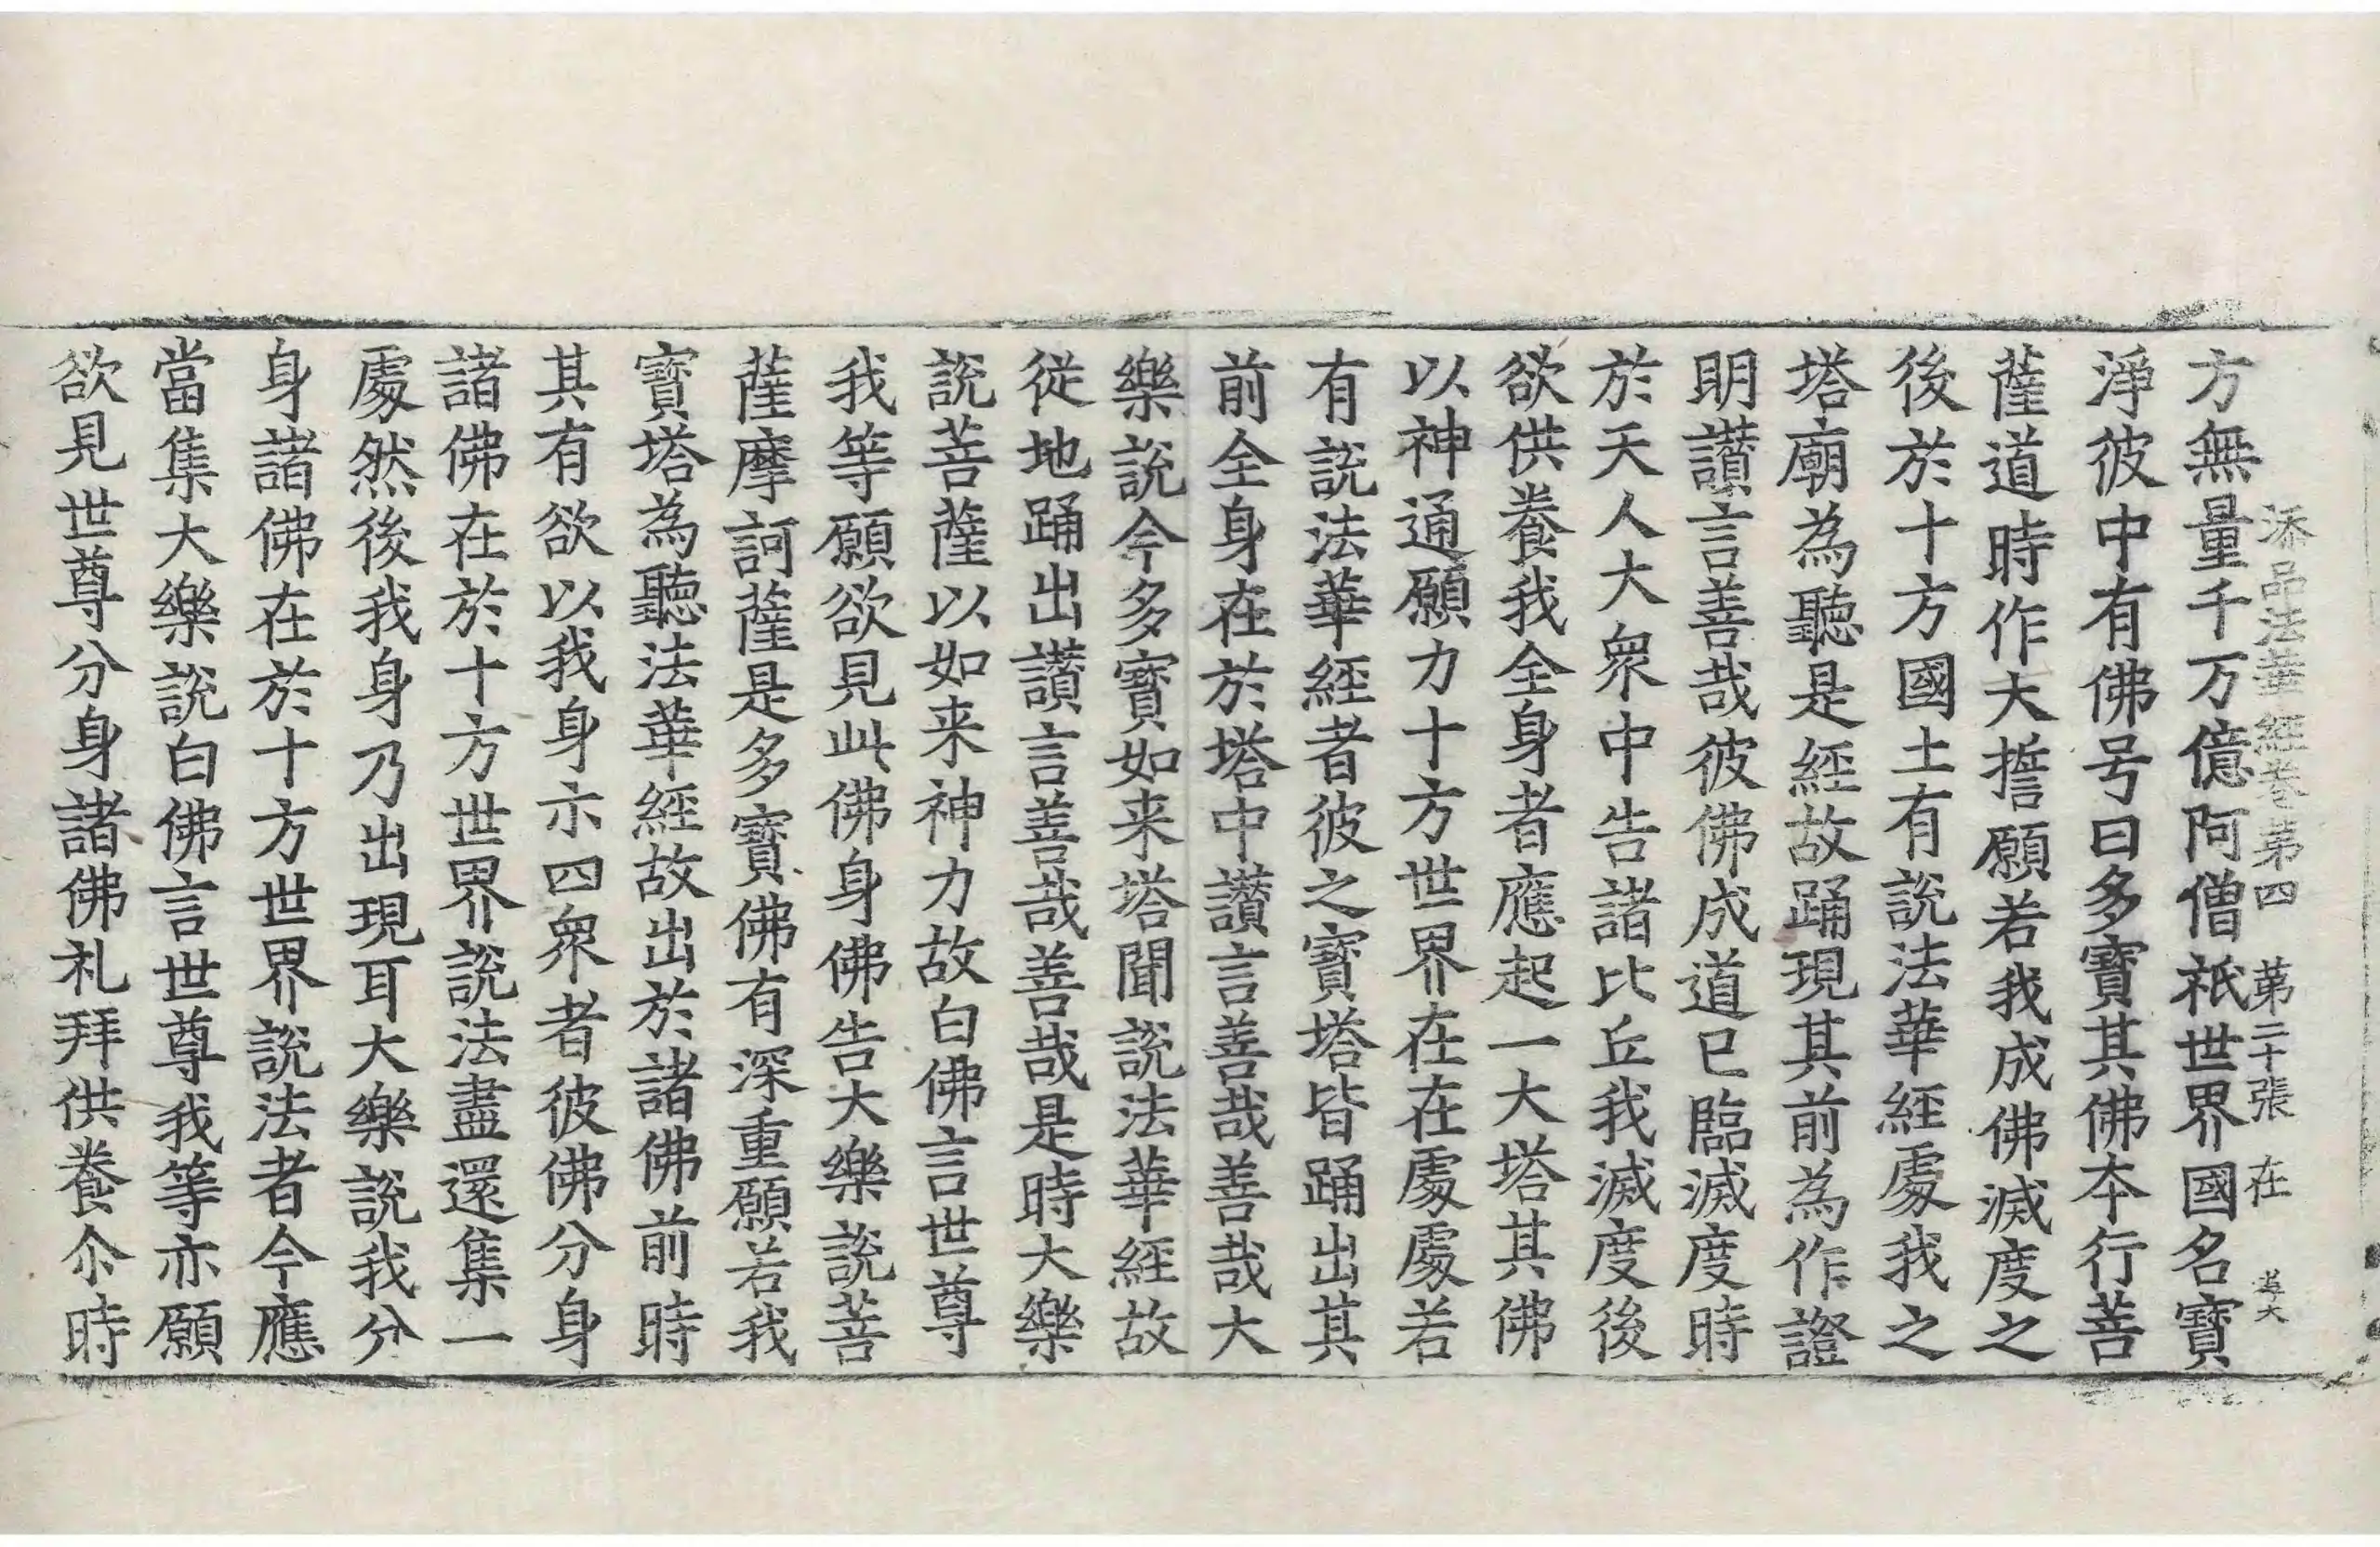 添品法華經卷第四 第二十張 在
方無量千万億阿僧祇世界國名寶
淨彼中有佛号曰多寶其佛本行菩
薩道時作大誓願若我成佛滅度之
後於十方國土有說法華經處我之
塔廟為聽是經故踊現其前為作證
明讃言善哉彼佛成道已臨滅度時
於天人大衆中告諸比丘我滅度後
欲供養我全身者應起一大塔其佛
以神通願力十方世界在在處處若
有說法華經者彼之寶塔皆踊出其
前全身在於塔中讃言善哉善哉大
樂說今多寶如来塔聞說法華經故
從地踊出讃言善哉善哉是時大樂
說菩薩以如来神力故白佛言世尊
我等願欲見此佛身佛告大樂說菩
薩摩訶薩是多寶佛有深重願若我
寶塔為聽法華經故出於諸佛前時
其有欲以我身示四衆者彼佛分身
諸佛在於十方世界說法盡還集一
處然後我身乃出現耳大樂說我分
身諸佛在於十方世界說法者今應
當集大樂說白佛言世尊我等亦願
欲見世尊分身諸佛礼拜供養尒時